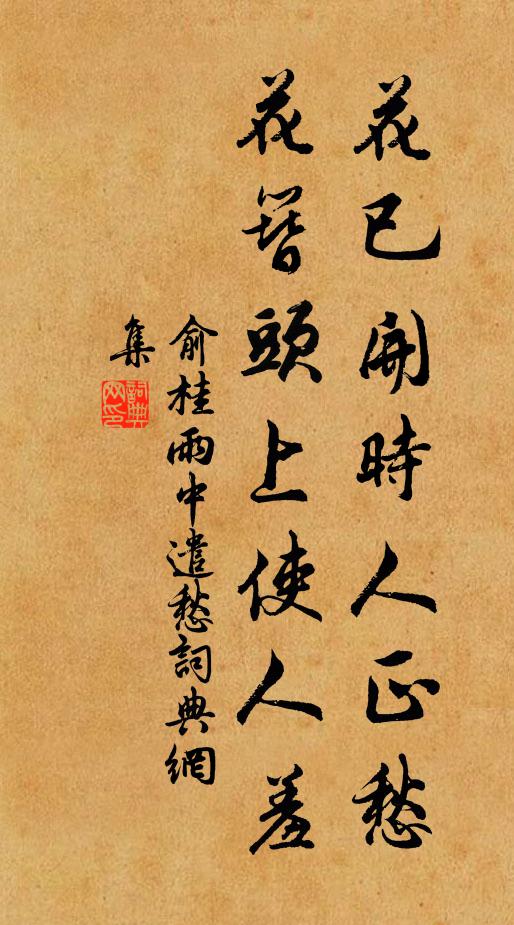 花已開時人正愁
花簪頭上使人羞
俞桂雨中遣愁詞典網
集
詞典網印